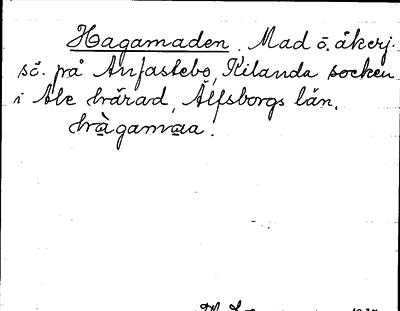 Hagamaden. Mad o. åkerj.
så. på Anfastebo, Kilanda socken
i Ale härad, Älfsborgs län.
hàgamaa.